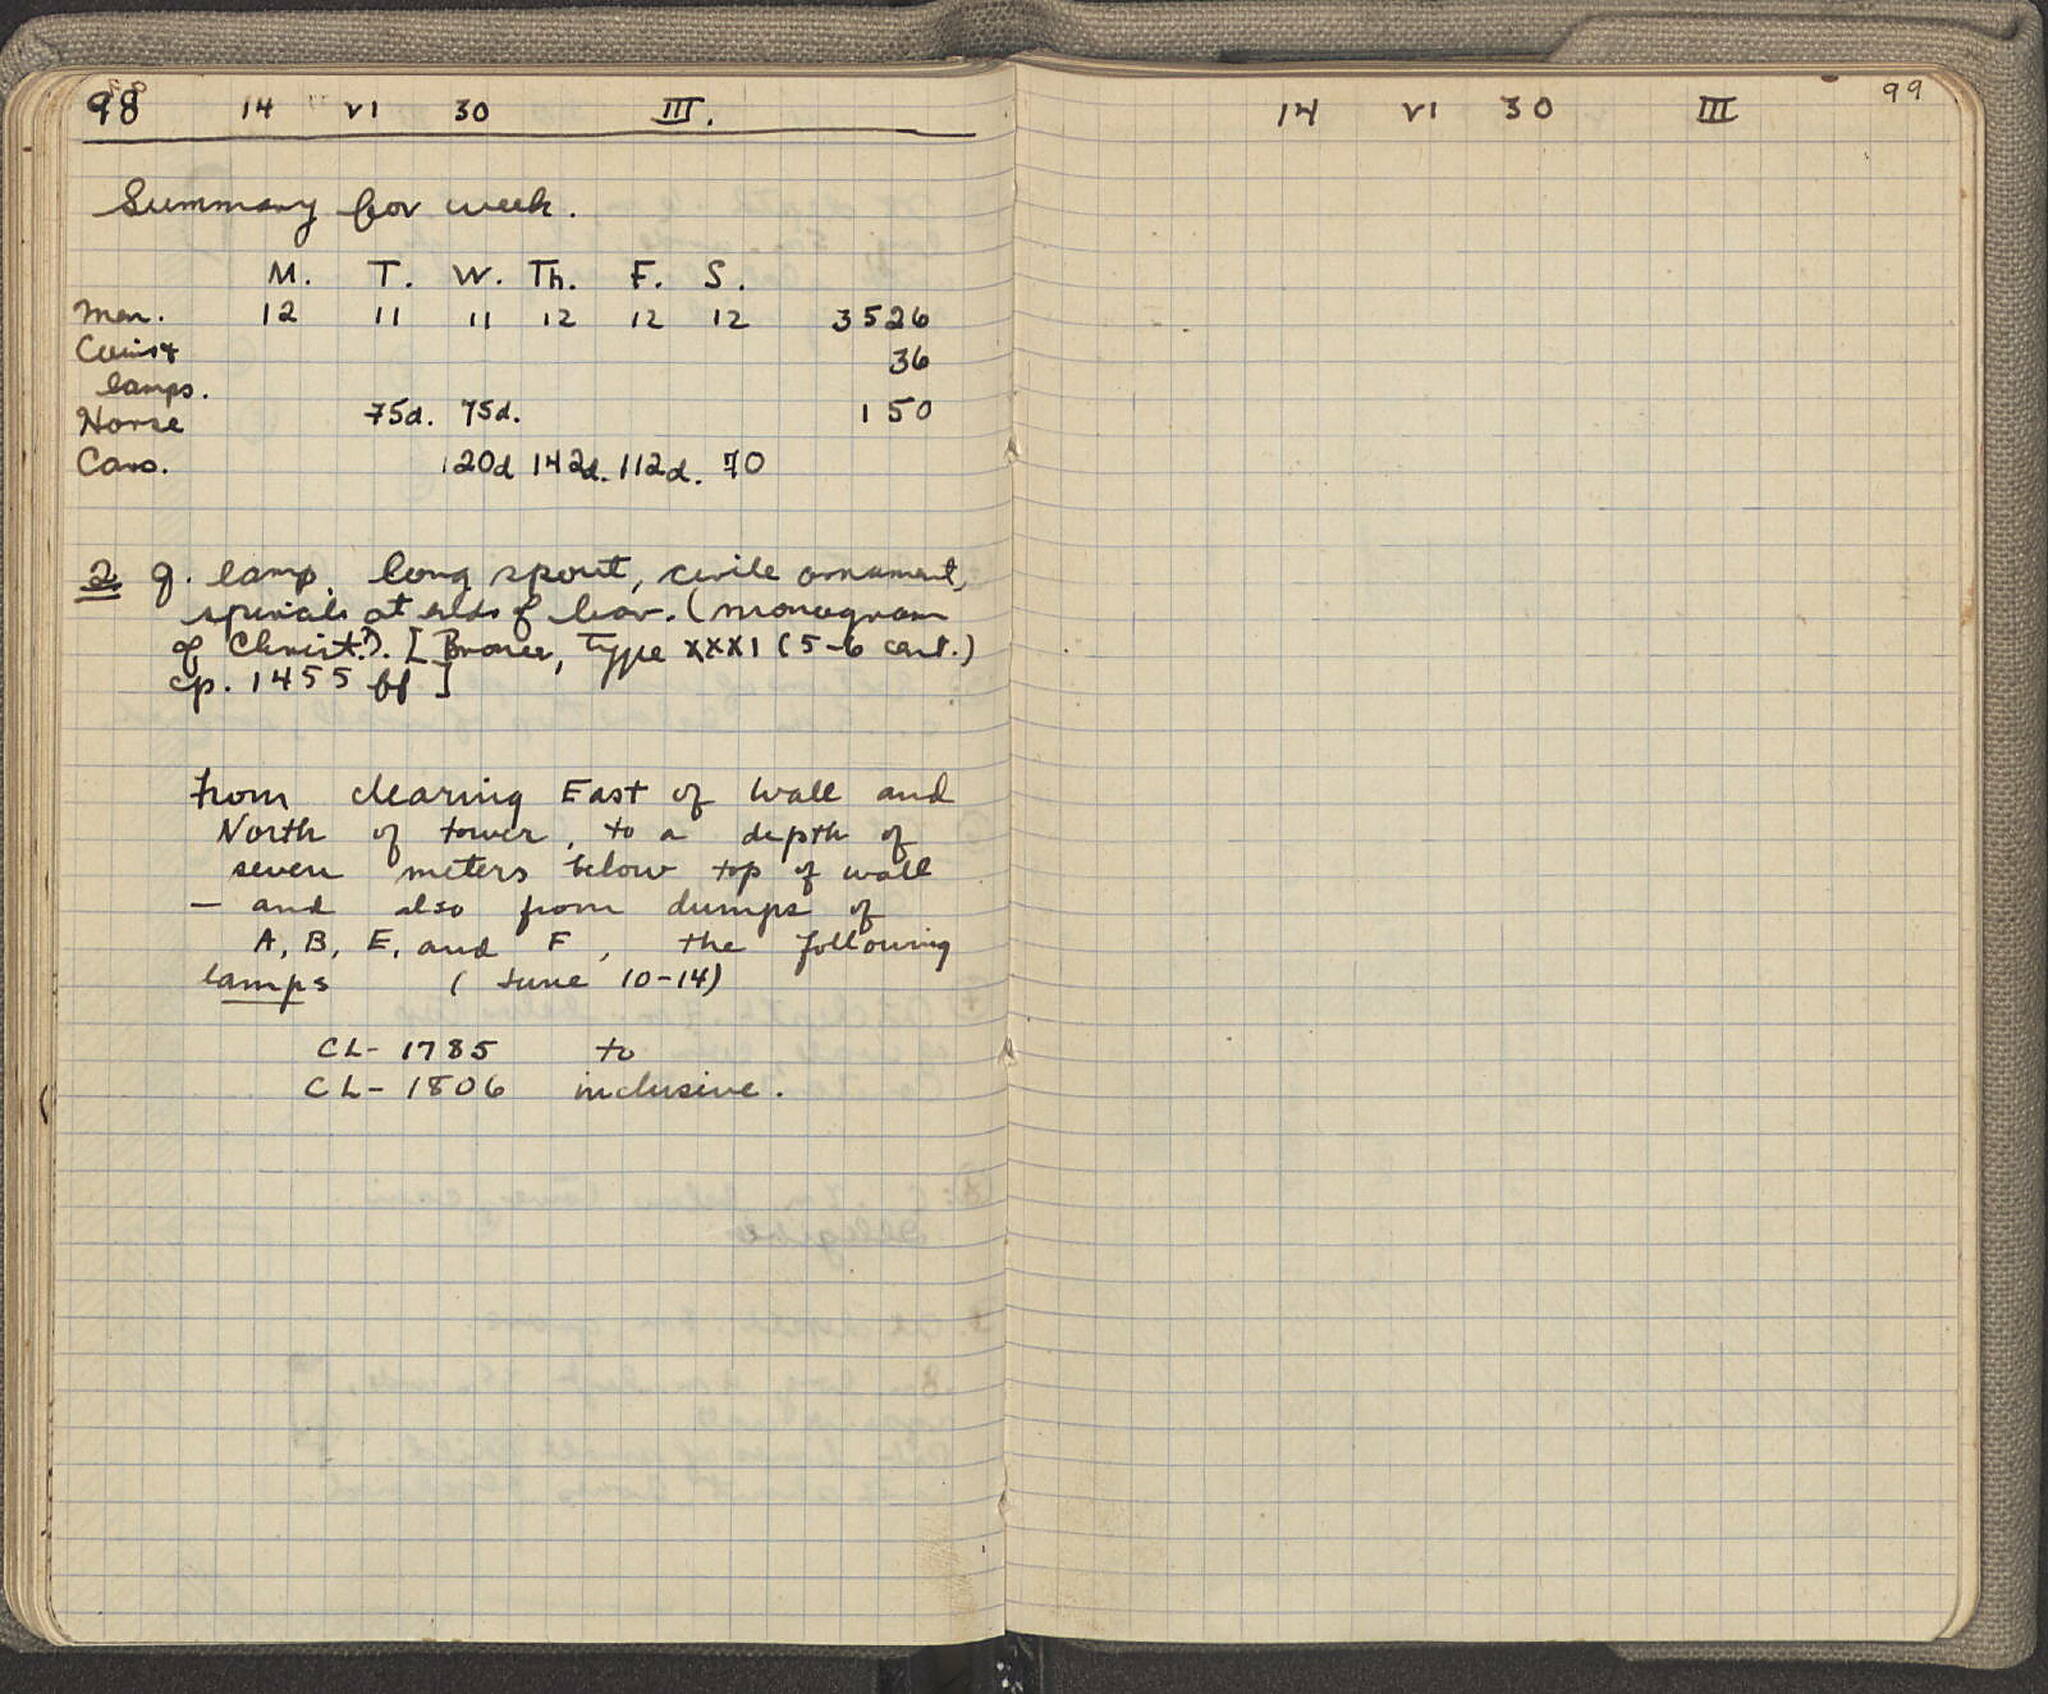 98 14 VI 30 III.
Summary for week.
M. T. W. Th. F. S.
Men. 12 11 11 12 12 12 3526
Coins & 36
lamps.
Horse 75d. 75d. 150
Cars. 120d 142d. 112d. 70
2 g. lamp, long spout, circle ornament,
spirals at ends of bar. (monogram
of Christ?). [Broneer, Type XXXI (5-6 cent.)
cp. 1455 ff]
From clearing East of wall and
North of tower, to a depth of
seven meters below top of wall
– and also from dumps of
A, B, E, and F, the following
lamps (June 10-14)
CL- 1785 to
CL- 1806 inclusive.
14 VI 30 III 99